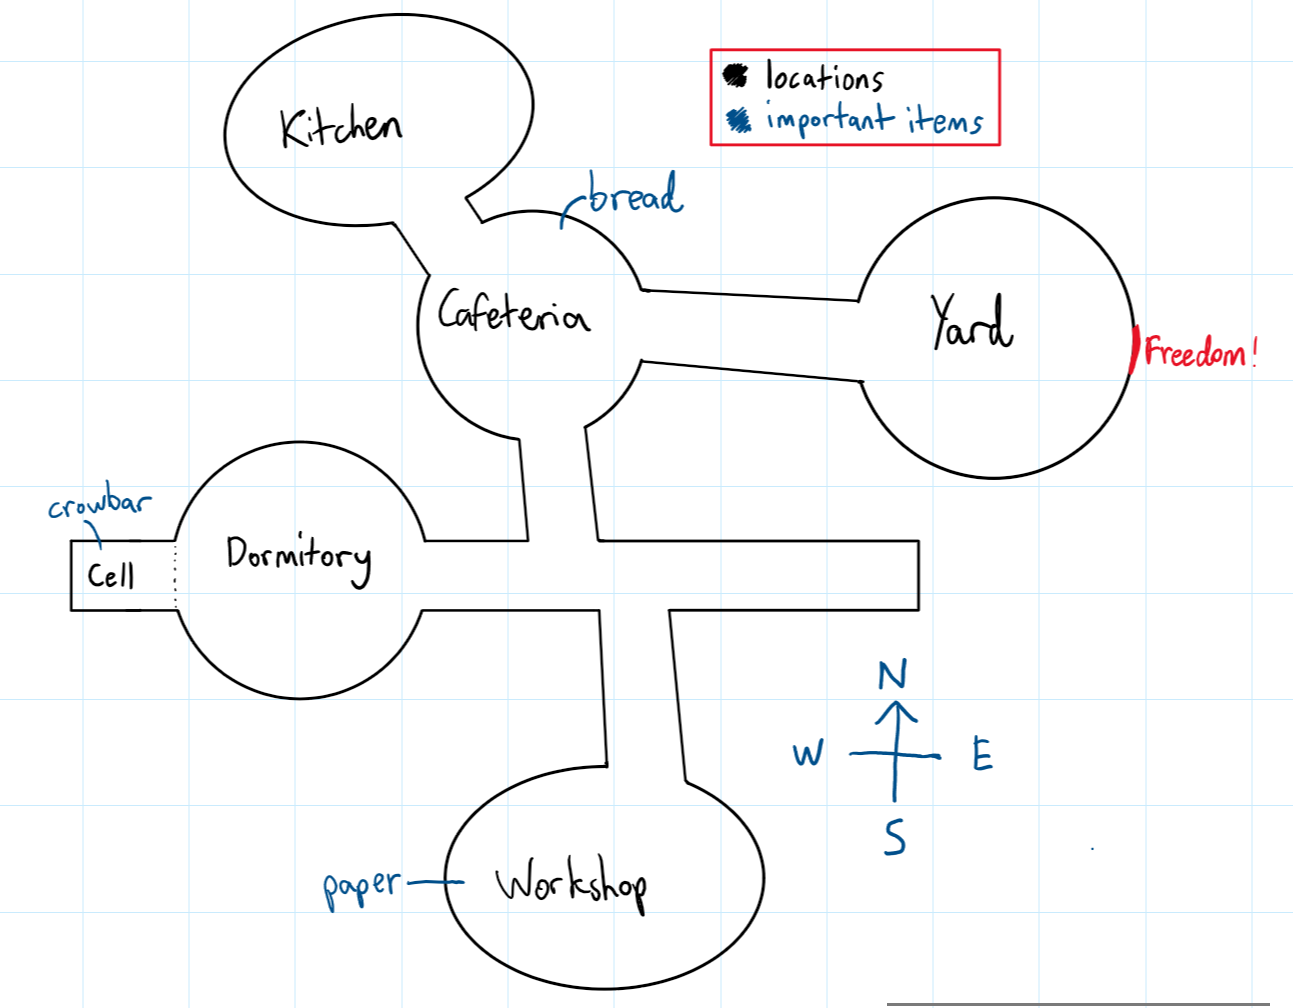 Kitchen
locations
important items
bread
Cafeteria
Yard
Freedom!
crowbar
Cell
Dormitory
N
W
E
S
paper
Workshop